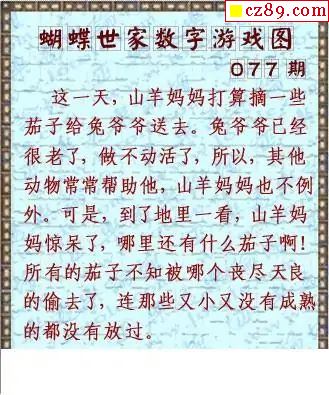 cz89.com
蝴蝶世家数字游戏图
077期
这一天，山羊妈妈打算摘一些
茄子给兔爷爷送去。兔爷爷已经
很老了，做不动活了，所以，其他
动物常常帮助他，山羊妈妈也不例
外。可是，到了地里一看，山羊妈
妈惊呆了，哪里还有什么茄子啊！
所有的茄子不知被哪个丧尽天良
的偷去了，连那些又小又没有成熟
的都没有放过。